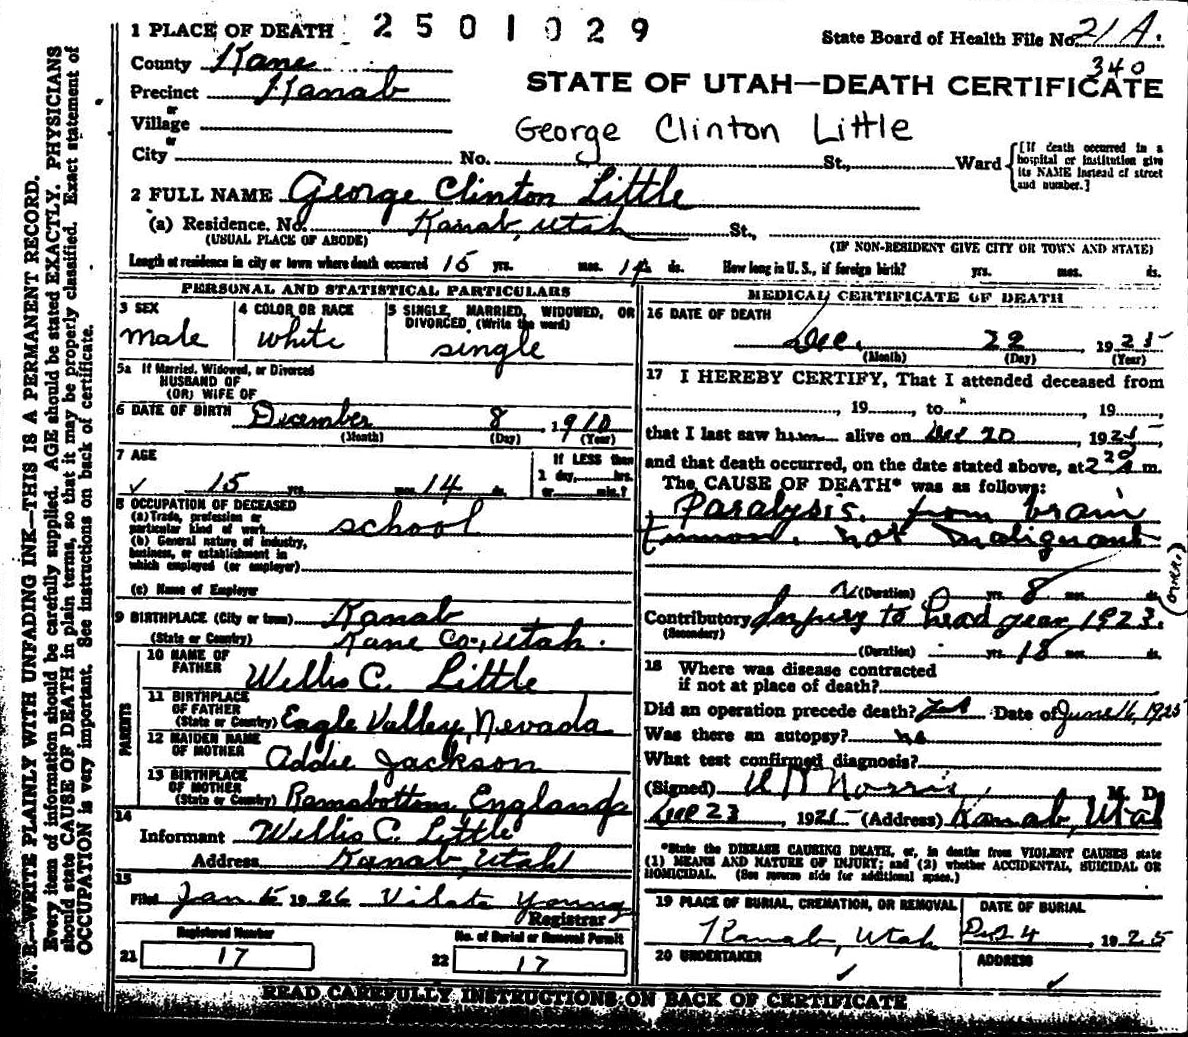 1 PLACE OF DEATH 2501029
State Board of Health File No. 21A.
340
County Kane
Precinct Kanab
STATE OF UTAH—DEATH CERTIFICATE
or
Village
George Clinton Little
or
City No. St., Ward
[If death occurred in a hospital or institution give its NAME instead of street and number.]
2 FULL NAME George Clinton Little
(a) Residence, No. Kanab, Utah St.,
(USUAL PLACE OF ABODE) (IF NON-RESIDENT GIVE CITY OR TOWN AND STATE)
Length of residence in city or town where death occurred 15 yrs. mos. 14 ds. How long in U. S., if foreign birth? yrs. mos. ds.
PERSONAL AND STATISTICAL PARTICULARS
3 SEX
male
4 COLOR OR RACE
white
5 SINGLE, MARRIED, WIDOWED, OR DIVORCED (Write the word)
single
5a If Married, Widowed, or Divorced
HUSBAND OF
(OR) WIFE OF
6 DATE OF BIRTH December 8, 1910
(Month) (Day) (Year)
7 AGE
If LESS than
1 day, hrs.
or min.?
✓ 15 yrs. mos. 14 ds.
8 OCCUPATION OF DECEASED
(a) Trade, profession or
particular kind of work school
(b) General nature of industry,
business, or establishment in
which employed (or employer)
(c) Name of Employer
9 BIRTHPLACE (City or town) Kanab
(State or Country) Kane Co., Utah.
PARENTS
10 NAME OF
FATHER Willis C. Little
11 BIRTHPLACE
OF FATHER
(State or Country) Eagle Valley, Nevada
12 MAIDEN NAME
OF MOTHER Addie Jackson
13 BIRTHPLACE
OF MOTHER
(State or Country) Ramsbottom, England
14
Informant Willis C. Little
Address Kanab, Utah
15
Filed Jan 5 1926 Vilate Young
Registrar
Registered Number
21 17
No. of Burial or Removal Permit
22 17
MEDICAL CERTIFICATE OF DEATH
16 DATE OF DEATH
Dec. 22 1925
(Month) (Day) (Year)
17 I HEREBY CERTIFY, That I attended deceased from
, 19 , to , 19 ,
that I last saw him alive on Dec 20, 1925
and that death occurred, on the date stated above, at m.
The CAUSE OF DEATH* was as follows:
Paralysis. from brain
tumor. not malignant
(Duration) yrs. 8 mos. ds.
Contributory Injury to head year 1923.
(Secondary)
(Duration) yrs. 18 mos. ds.
(OVER.)
18 Where was disease contracted
if not at place of death?
Did an operation precede death? Yes Date of June 16, 1925
Was there an autopsy? no
What test confirmed diagnosis?
(Signed) Norris, M. D.
Dec 23, 1925 (Address) Kanab, Utah
*State the DISEASE CAUSING DEATH, or, in deaths from VIOLENT CAUSES state
(1) MEANS AND NATURE OF INJURY; and (2) whether ACCIDENTAL, SUICIDAL OR
HOMICIDAL. (See reverse side for additional space.)
19 PLACE OF BURIAL, CREMATION, OR REMOVAL
Kanab, Utah
DATE OF BURIAL
24, 1925
20 UNDERTAKER
✓
ADDRESS
✓
READ CAREFULLY INSTRUCTIONS ON BACK OF CERTIFICATE
N. B.—WRITE PLAINLY WITH UNFADING INK—THIS IS A PERMANENT RECORD.
Every item of information should be carefully supplied. AGE should be stated EXACTLY. PHYSICIANS
should state CAUSE OF DEATH in plain terms, so that it may be properly classified. Exact statement of
OCCUPATION is very important. See instructions on back of certificate.